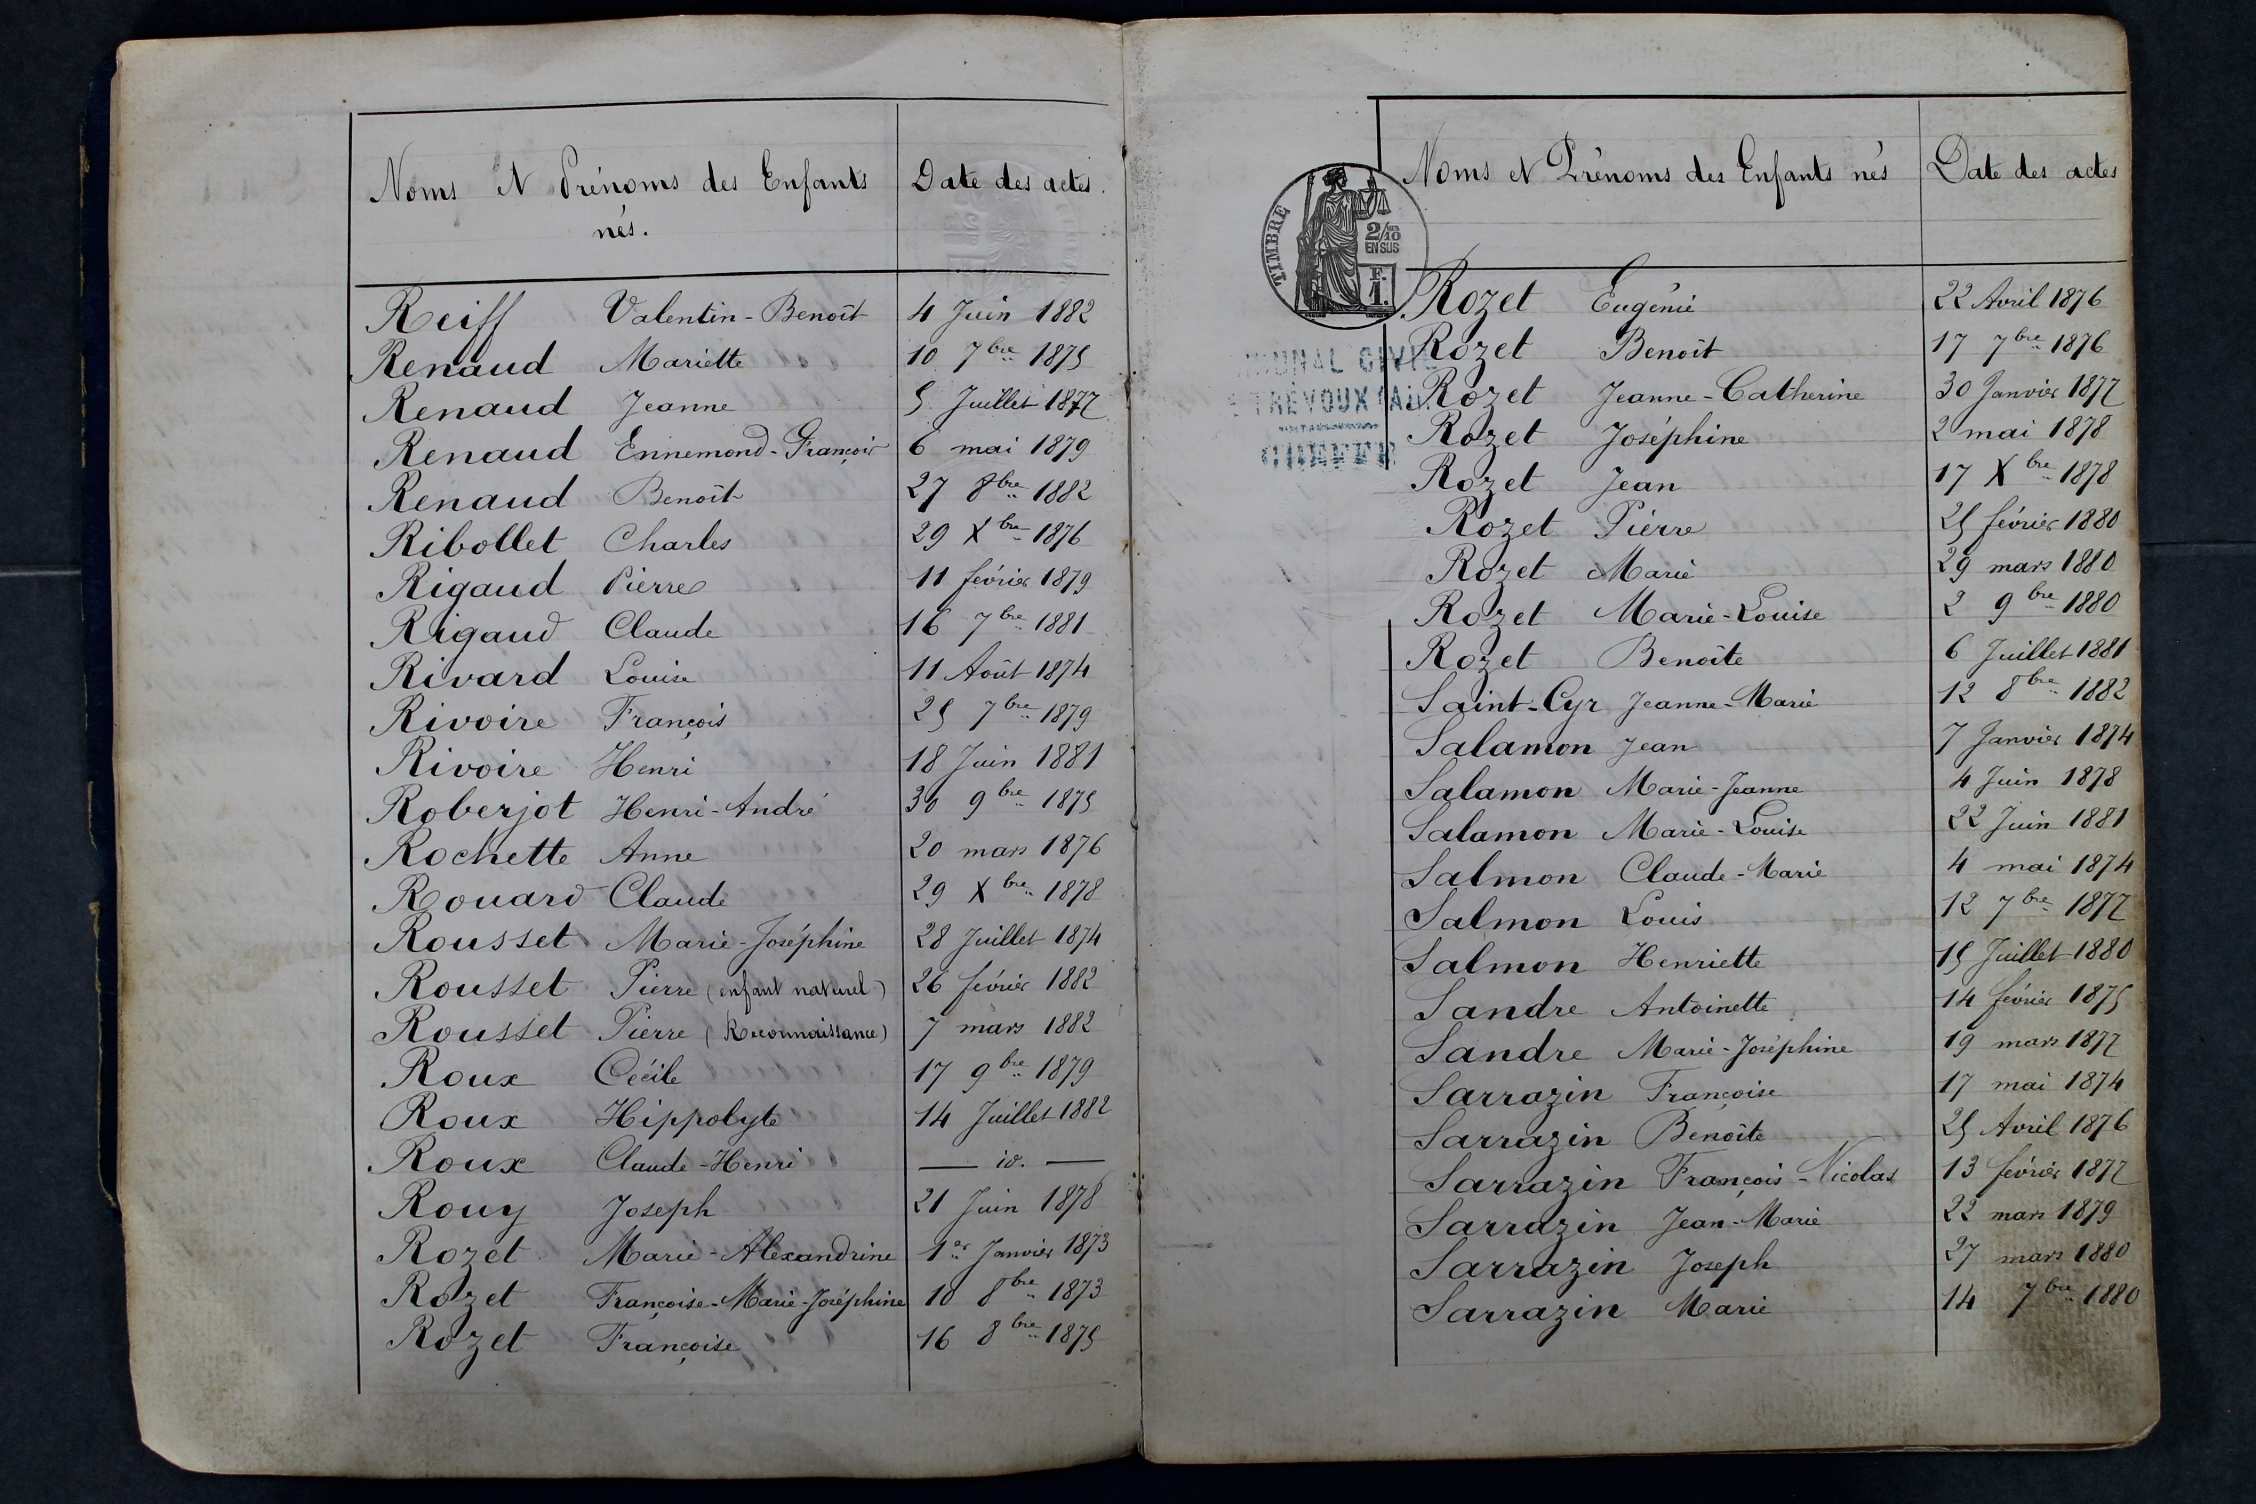 Noms et Prénoms des Enfants
nés.
Date des actes.
Reiff Valentin-Benoît 4 Juin 1882
Renaud Mariette 10 7bre 1875
Renaud Jeanne 5 Juillet 1877
Renaud Ennemond-François 6 mai 1879
Renaud Benoît 27 8bre 1882
Ribollet Charles 29 Xbre 1876
Rigaud Pierre 11 février 1879
Rigaud Claude 16 7bre 1881
Rivard Louise 11 Août 1874
Rivoire François 25 7bre 1879
Rivoire Henri 18 Juin 1881
Roberjot Henri-André 30 9bre 1875
Rochette Anne 20 mars 1876
Rouard Claude 29 Xbre 1878
Rousset Marie-Joséphine 28 Juillet 1874
Rousset Pierre (enfant naturel) 26 février 1882
Rousset Pierre (Reconnaissance) 7 mars 1882
Roux Cécile 17 9bre 1879
Roux Hippolyte 14 Juillet 1882
Roux Claude-Henri — id. —
Rouy Joseph 21 Juin 1878
Rozet Marie-Alexandrine 1er Janvier 1873
Rozet Françoise-Marie-Joséphine 10 8bre 1873
Rozet Françoise 16 8bre 1875
Noms et Prénoms des Enfants nés
Date des actes
TIMBRE
2/10
EN SUS
F.
1.
CIVIL
TRÉVOUX (AIN
Rozet Eugénie 22 Avril 1876
Rozet Benoît 17 7bre 1876
Rozet Jeanne-Catherine 30 Janvier 1877
Rozet Joséphine 2 mai 1878
Rozet Jean 17 Xbre 1878
Rozet Pierre 25 février 1880
Rozet Marie 29 mars 1880
Rozet Marie-Louise 2 9bre 1880
Rozet Benoîte 6 Juillet 1881
Saint-Cyr Jeanne-Marie 12 8bre 1882
Salamon Jean 7 Janvier 1874
Salamon Marie-Jeanne 4 Juin 1878
Salamon Marie-Louise 22 Juin 1881
Salmon Claude-Marie 4 mai 1874
Salmon Louis 12 7bre 1877
Salmon Henriette 15 Juillet 1880
Sandre Antoinette 14 février 1875
Sandre Marie-Joséphine 19 mars 1877
Sarrazin Françoise 17 mai 1874
Sarrazin Benoîte 25 Avril 1876
Sarrazin François-Nicolas 13 février 1877
Sarrazin Jean-Marie 22 mars 1879
Sarrazin Joseph 27 mars 1880
Sarrazin Marie 14 7bre 1880